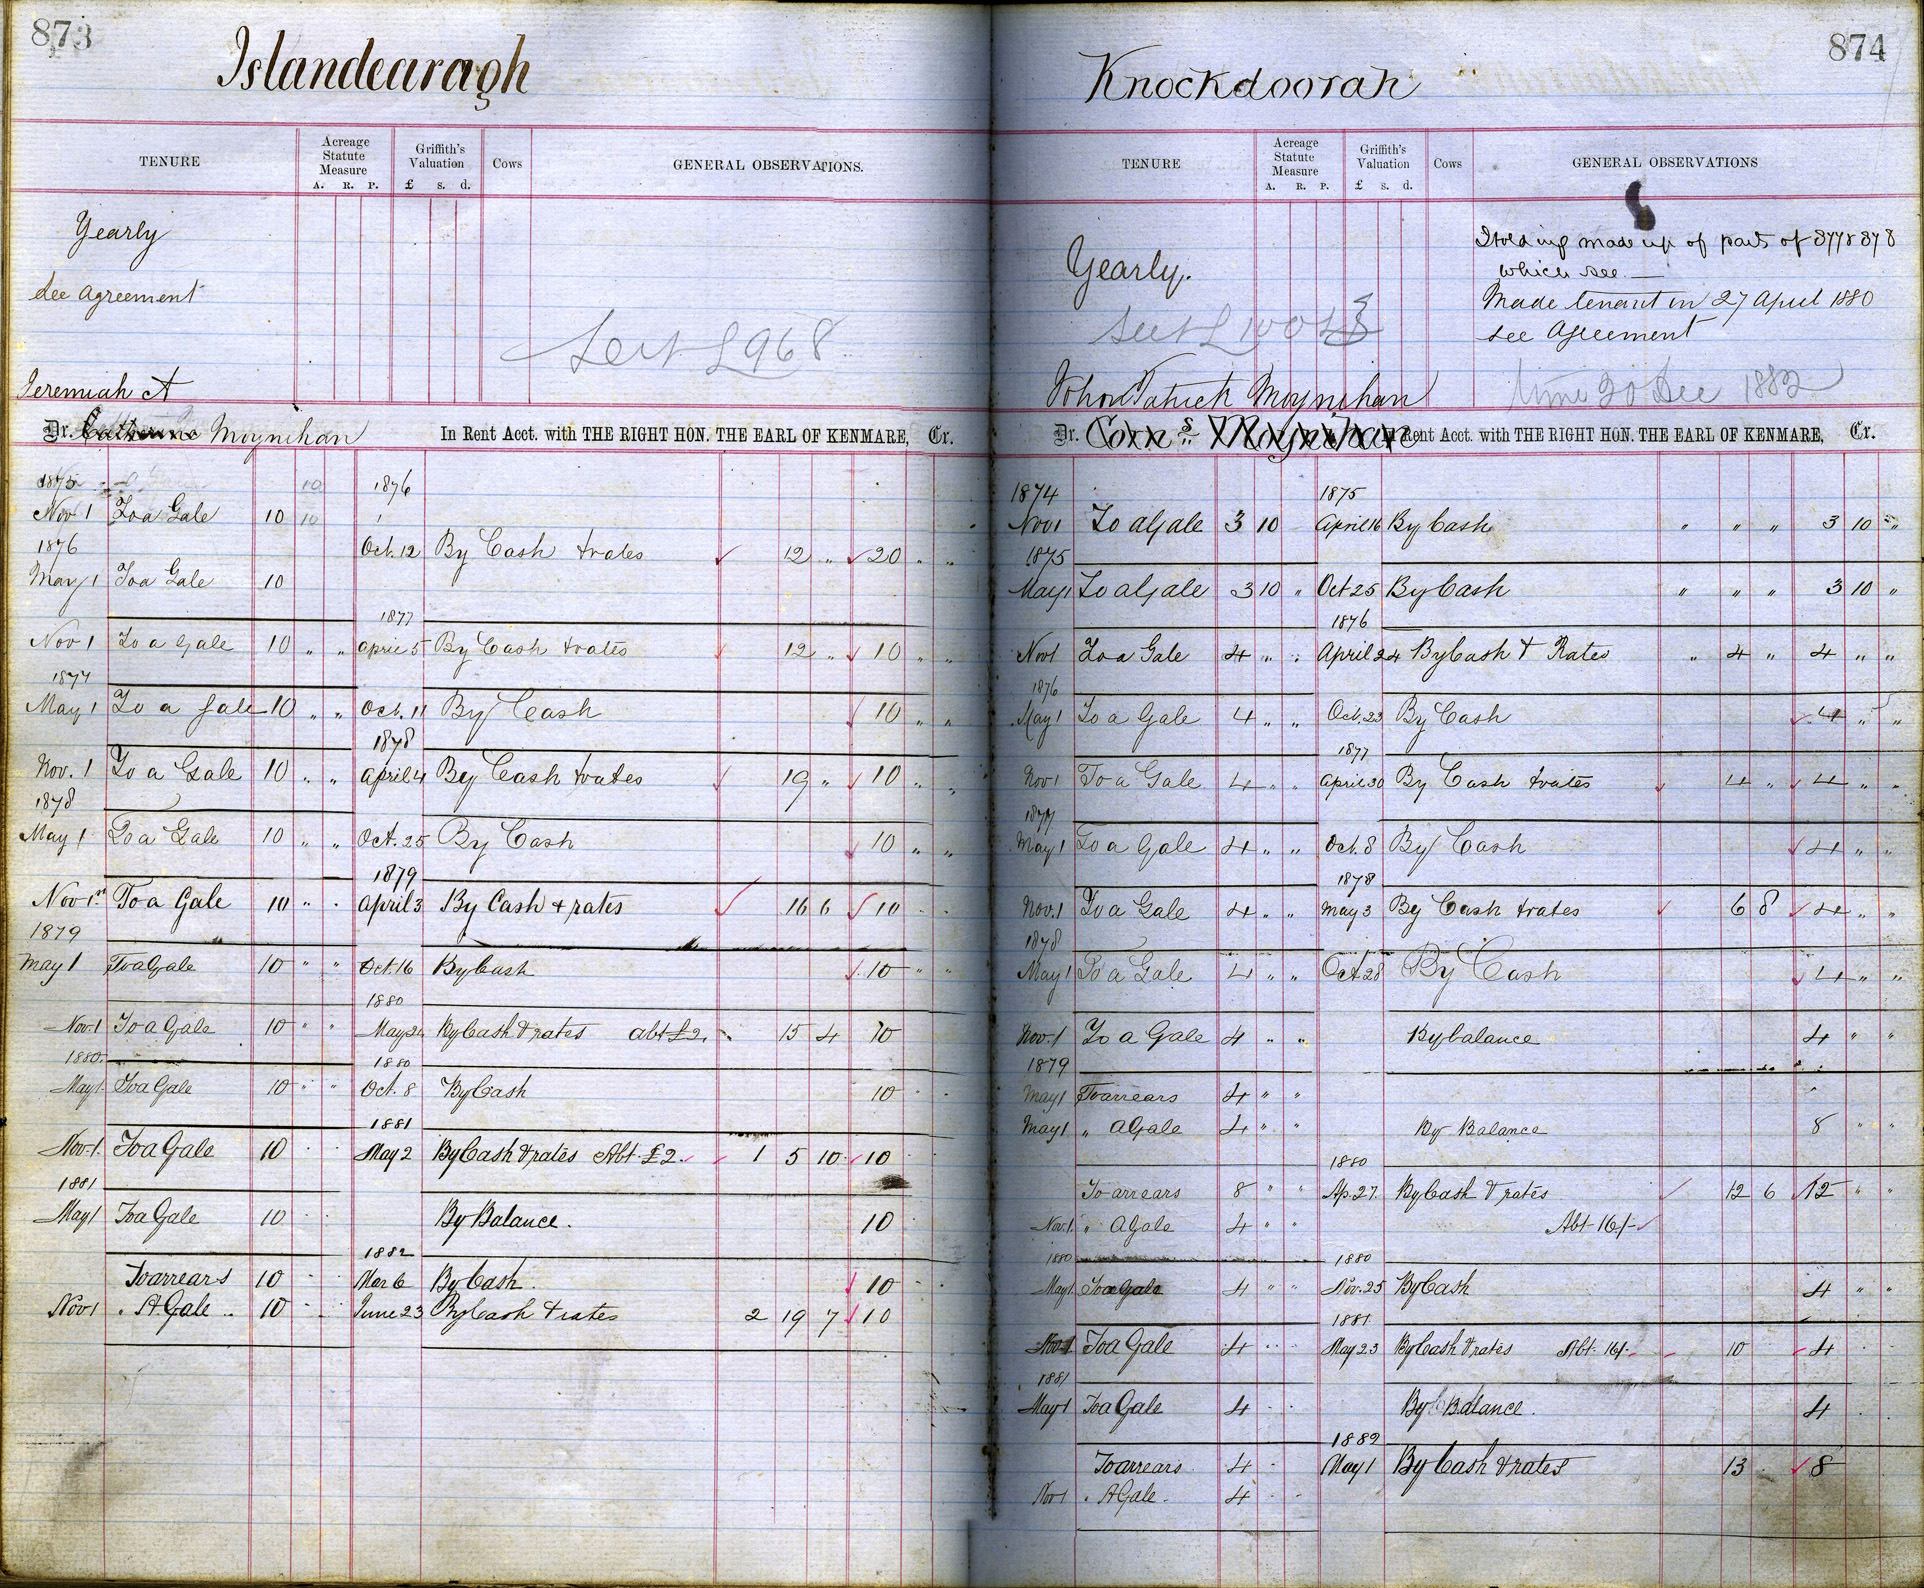 873
Islandearagh
TENURE
Acreage Statute Measure
A. R. P.
Griffith's Valuation
£ s. d.
Cows
GENERAL OBSERVATIONS.
Yearly
See Agreement
Jeremiah A
Dr. Catherine Moynihan In Rent Acct. with THE RIGHT HON. THE EARL OF KENMARE, Cr.
1875 10 1876
Nov 1 To a Gale 10 10
1876 Oct. 12 By Cash & rates 12 " 20 " "
May 1 To a Gale 10
1877
Nov 1 To a Gale 10 " " April 5 By Cash & rates 12 " 10 " "
1877
May 1 To a Gale 10 " " Oct. 11 By Cash 10 " "
1878
Nov. 1 To a Gale 10 " " April 4 By Cash & rates 19 " 10 " "
1878
May 1 To a Gale 10 " " Oct. 25 By Cash 10 " "
1879
Nov 1st To a Gale 10 " " April 3 By Cash & rates 16 6 10 " "
1879
May 1 To a Gale 10 " " Oct. 16 By Cash 10 " "
1880
Nov. 1 To a Gale 10 " " May 24 By Cash & rates abt £2. 15 4 10
1880. 1880
May 1 To a Gale 10 " " Oct. 8 By Cash 10
1881
Nov. 1. To a Gale 10 May 2 By Cash & rates Abt £2. 1 5 10 10
1881
May 1 To a Gale 10 By Balance. 10
1882
To arrears 10 Mar 6 By Cash. 10
Nov 1 " A Gale " 10 June 23 By Cash & rates 2 19 7 10
874
Knockdoorah
TENURE
Acreage Statute Measure
A. R. P.
Griffith's Valuation
£ s. d.
Cows
GENERAL OBSERVATIONS
Yearly.
Holding made up of parts of 877 & 878
which see —
Made tenant in 27 April 1880
See Agreement
20 Dec 1882
John Patrick Moynihan
Dr. Corns " Moynihan In Rent Acct. with THE RIGHT HON. THE EARL OF KENMARE, Cr.
1874 1875
Nov 1 To a Gale 3 10 April 16 By Cash " " " 3 10 "
1875
May 1 To a Gale 3 10 " Oct 25 By Cash " " " 3 10 "
1876
Nov 1 To a Gale 4 " " April 24 By Cash & Rates " 4 " 4 " "
1876
May 1 To a Gale 4 " " Oct. 23 By Cash 4 " "
1877
Nov 1 To a Gale 4 " " April 30 By Cash & rates 4 " 4 " "
1877
May 1 To a Gale 4 " " Oct. 8 By Cash 4 " "
1878
Nov. 1 To a Gale 4 " " May 3 By Cash & rates 6 8 4 " "
1878
May 1 To a Gale 4 " " Oct 28 By Cash 4 " "
Nov. 1 To a Gale 4 " " By balance 4 " "
1879
May 1 To arrears 4 " "
May 1 " a Gale 4 " " By Balance 8 " "
1880
To arrears 8 " " Ap. 27. By Cash & rates 12 6 12 " "
Nov. 1. " a Gale 4 " " Abt 16/-
1880 1880
May 1 To a Gale 4 " " Nov. 25 By Cash 4 " "
1881
Nov 1 To a Gale 4 " " May 23 By Cash & rates Abt 16/- 10 4
1881
May 1 To a Gale 4 By Balance. 4
1882
To arrears 4 May 1 By Cash & rates 13 8
Nov 1 " A Gale. 4